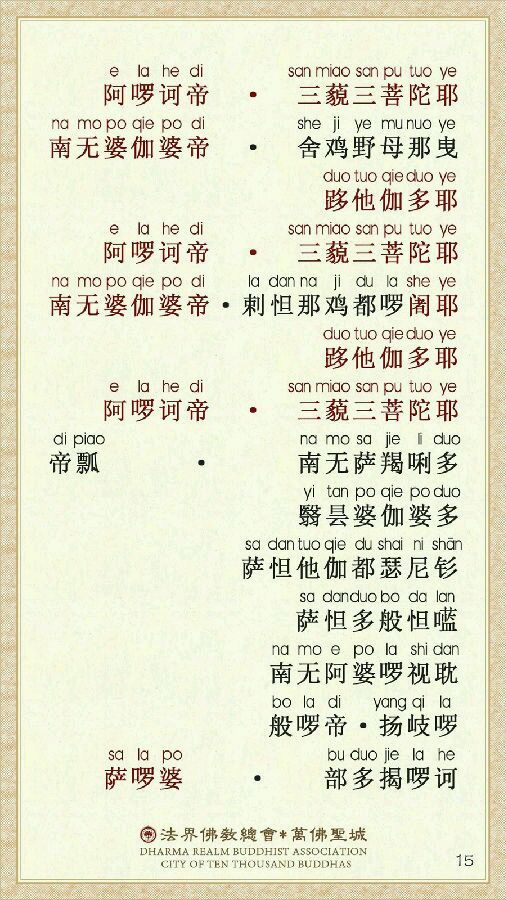 e la he di san miao san pu tuo ye
阿啰诃帝 · 三藐三菩陀耶
na mo po qie po di she ji ye mu nuo ye
南无婆伽婆帝 · 舍鸡野母那曳
duo tuo qie duo ye
跢他伽多耶
e la he di san miao san pu tuo ye
阿啰诃帝 · 三藐三菩陀耶
na mo po qie po di la dan na ji du la she ye
南无婆伽婆帝 · 剌怛那鸡都啰阇耶
duo tuo qie duo ye
跢他伽多耶
e la he di san miao san pu tuo ye
阿啰诃帝 · 三藐三菩陀耶
di piao na mo sa jie li duo
帝瓢 · 南无萨羯唎多
yi tan po qie po duo
翳昙婆伽婆多
sa dan tuo qie du shai ni shān
萨怛他伽都瑟尼钐
sa dan duo bo da lan
萨怛多般怛㘕
na mo e po la shi dan
南无阿婆啰视耽
bo la di yang qi la
般啰帝 · 扬岐啰
sa la po bu duo jie la he
萨啰婆 · 部多揭啰诃
法界佛教總會 * 萬佛聖城
DHARMA REALM BUDDHIST ASSOCIATION
CITY OF TEN THOUSAND BUDDHAS
15